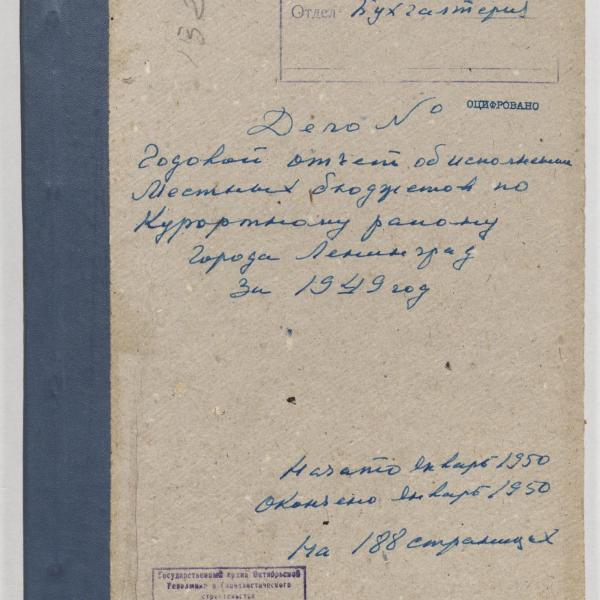 Отдел Бухгалтерия
ОЦИФРОВАНО
Дело №
Годовой отчет об исполнении
Местных бюджетов по
Курортному району
города Ленинград
За 1949 год
Начато Январь 1950
Окончено Январь 1950
На 188 страницах
Государственный Архив Октябрьской
Революции и Социалистического
строительства